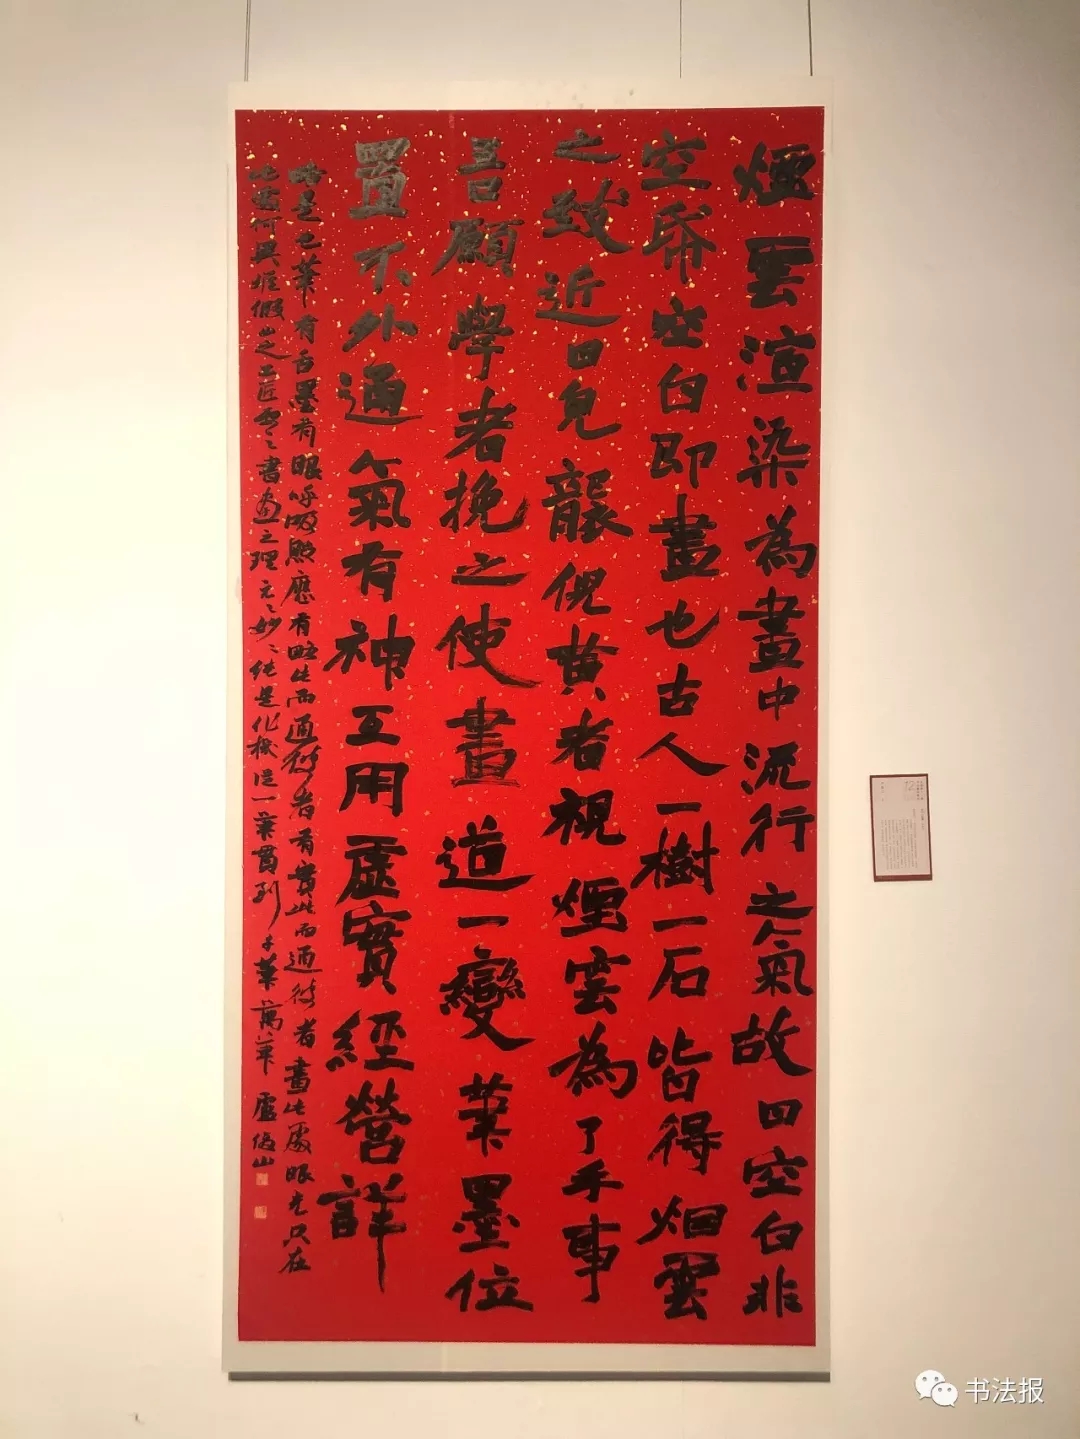 煙雲渲染為畫中流行之氣故曰空白非
空帋空白即畫也古人一樹一石皆得烟雲
之致近日見龔倪黄者視煙雲為了手事
吾願學者挽之使畫道一變筆墨位
置不外通氣有神互用虛實經營詳
略是也筆有舌墨有眼呼吸照應有略此而通彼者有實此而通彼者畫此處眼光只在
此處何異雄假山之工匠哉書畫之理元之妙之純是化機從一筆貫到千筆萬筆 盧俊山
书法报